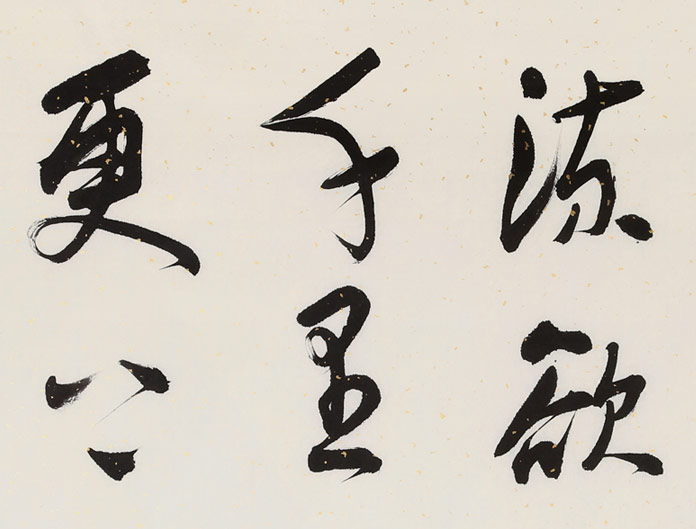 流欲
千里
更上